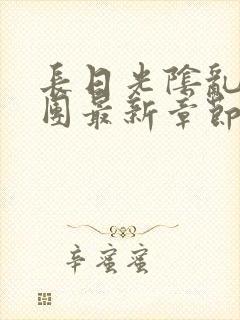 長日光陰亂
團最新章節
辛蜜蜜